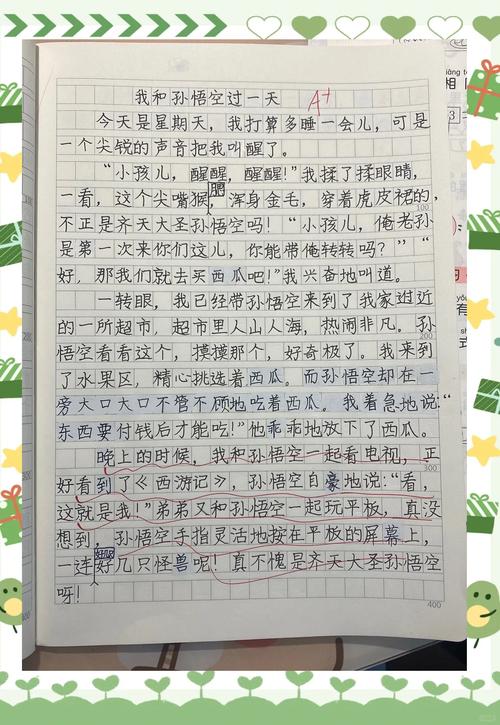 我和孙悟空过一天
A+
今天是星期天，我打算多睡一会儿，可是
一个尖锐的声音把我叫醒了。
“小孩儿，醒醒，醒醒！”我揉了揉眼睛，
一看，这个尖嘴猴腮，浑身金毛，穿着虎皮裙的，
100
不正是齐天大圣孙悟空吗！“小孩儿，俺老孙
是第一次来你们这儿，你能带俺转转吗？”“
好，那我们就去买西瓜吧！”我兴奋地叫道。
一转眼，我已经带孙悟空来到了我家附近
的一所超市，超市里人山人海，热闹非凡。孙
200
悟空看看这个，摸摸那个，好奇极了。我来到
了水果区，精心挑选着西瓜。而孙悟空却在一
旁大口大口不管不顾地吃着西瓜。我着急地说：“
东西要付钱后才能吃！”他乖乖地放下了西瓜。
晚上的时候，我和孙悟空一起看电视，正
300
好看到了《西游记》，孙悟空自豪地说：“看，
这就是我！”弟弟又和孙悟空一起玩平板，真没
想到，孙悟空手指灵活地按在平板的屏幕上，
一连好几只怪兽呢！真不愧是齐天大圣孙悟空
呀！
400